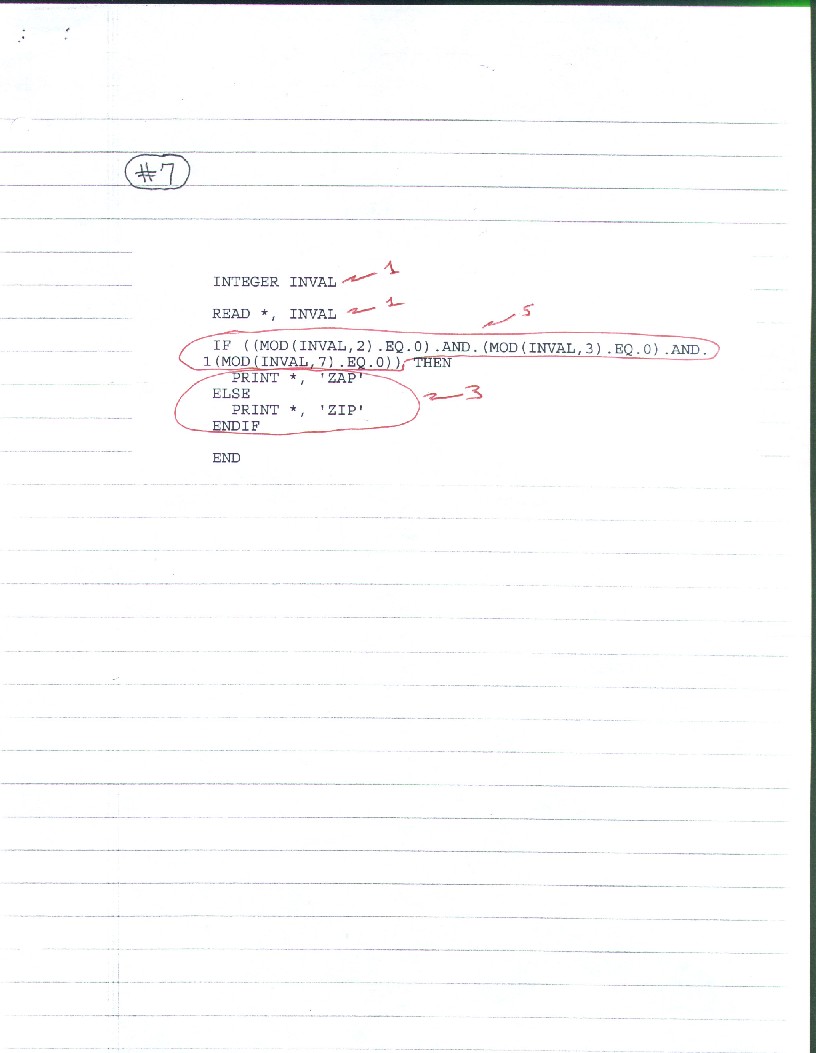 #7
INTEGER INVAL 1
READ *, INVAL 1
5
IF ((MOD(INVAL,2).EQ.0).AND.(MOD(INVAL,3).EQ.0).AND.
1(MOD(INVAL,7).EQ.0)) THEN
PRINT *, 'ZAP'
ELSE 3
PRINT *, 'ZIP'
ENDIF
END